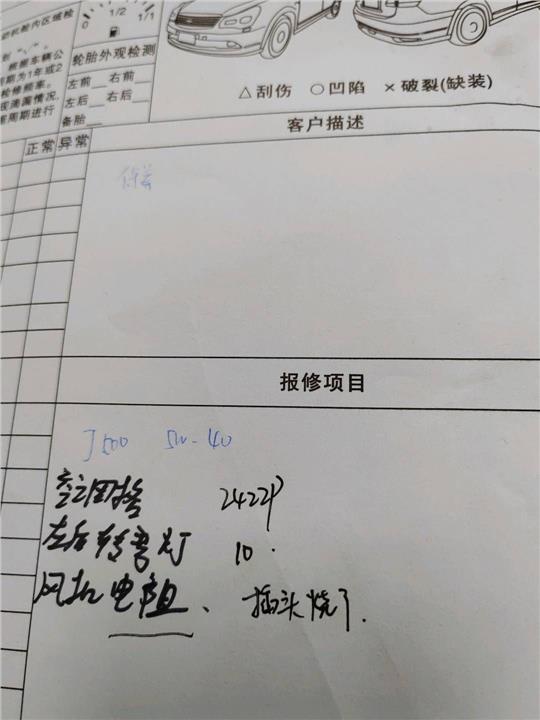 动机舱内区域检
根据车辆公
周期为1年或2
检修频率。
现滴漏情况,
周期进行
0 1/2 1/1
轮胎外观检测
左前__右前__
左后__右后__
备胎__
△刮伤 ○凹陷 ×破裂(缺装)
正常 异常
客户描述
保养
报修项目
J500 5W-40
空调格 2422P
左后转弯灯 10.
风机电阻、插头烧了.